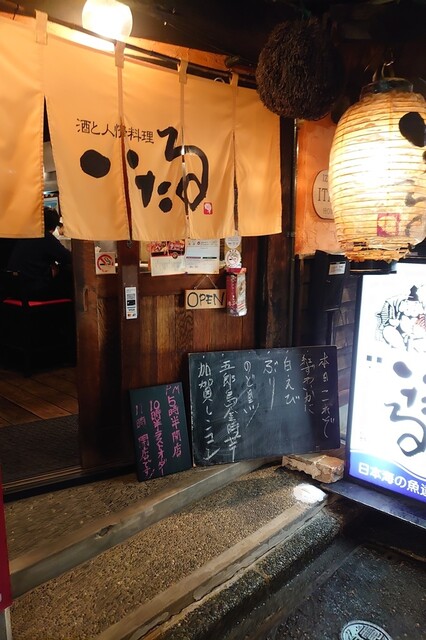 酒と人情料理
いたる
OPEN
本日一押し
白えび
ぶり
のど黒
五郎島金時芋
加賀レンコン
5時半開店
10時半ラストオーダー
11時 閉店です
いたる
日本海の魚